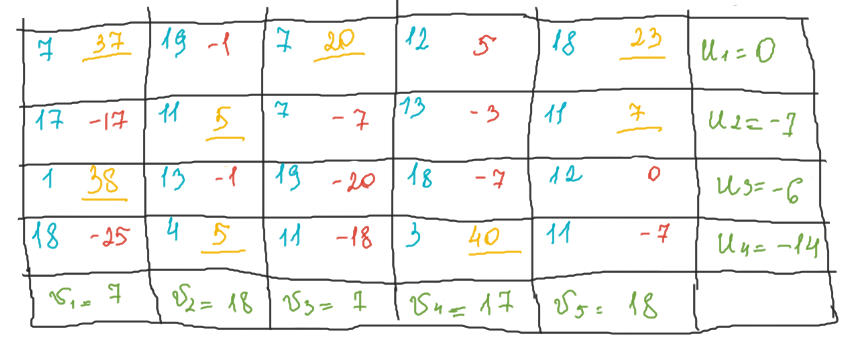 7 37 19 -1 7 20 12 5 18 23 u₁ = 0
17 -17 11 5 7 -7 13 -3 11 7 u₂ = -7
1 38 13 -1 19 -20 18 -7 12 0 u₃ = -6
18 -25 4 5 11 -18 3 40 11 -7 u₄ = -14
v₁ = 7 v₂ = 18 v₃ = 7 v₄ = 17 v₅ = 18